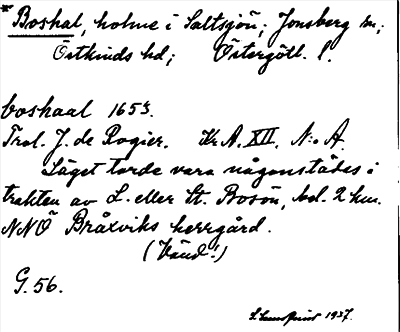 *Boskal, holme i Saltsjön; Jonsberg sn;
Östkinds hd; Östergötl. l.
boskaal 1653.
Trol. J. de Rogier. Kr.A. XII. N:o A.
Läget torde vara någonstädes i
trakten av L. eller St. Bosön, bel. 2 km.
NNÖ Bråxviks herrgård.
(Vänd!)
G. 56.
1937.